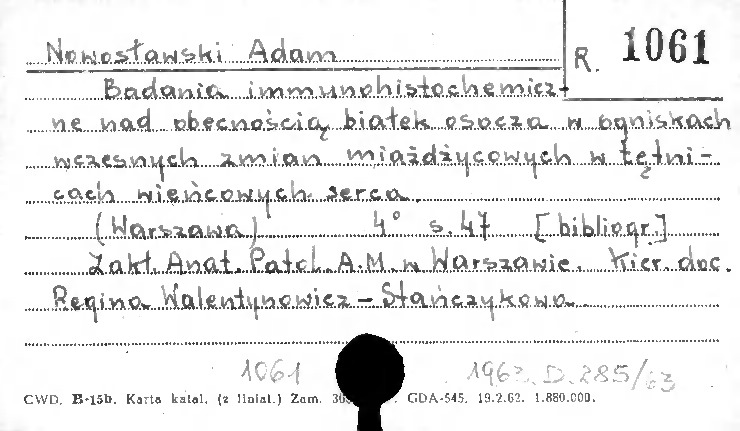 Nowosławski Adam
R. 1061
Badania immunohistochemicz-
ne nad obecnością białek osocza w ogniskach
wczesnych zmian miażdżycowych w tętni-
cach wieńcowych serca.
(Warszawa) 4° s. 47 [bibliogr.]
Zakt. Anat. Patol. A.M. w Warszawie. Kier. doc.
Regina Walentynowicz-Stańczykowa
1061 1963. D. 285/63
CWD. B-15b. Karta katal. (z liniat.) Zam. GDA-545. 19.2.62. 1.880.000.